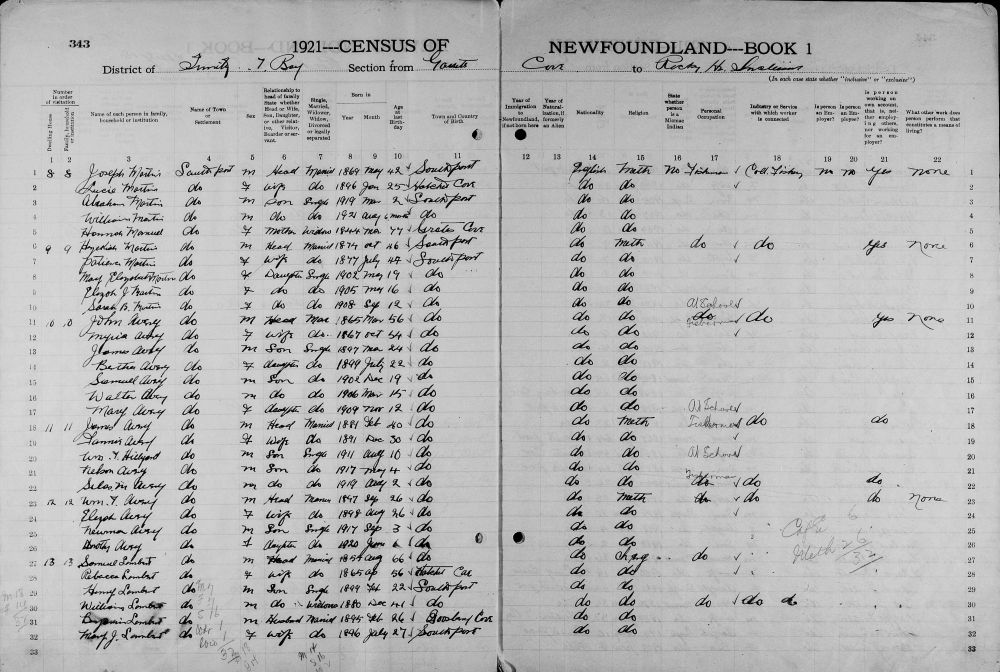 343
1921---CENSUS OF NEWFOUNDLAND---BOOK 1
District of Trinity T. Bay Section from Goose Cove to Rocky Hr.
(In each case state whether "inclusive" or "exclusive")
Number in order of visitation
Dwelling House
Family, household or institution
Name of each person in family, household or institution
Name of Town or Settlement
Sex
Relationship to head of family State whether Head or Wife, Son, Daughter, or other relative, Visitor, Boarder or servant.
Single, Married, Widower, Widow, Divorced or legally separated
Born in
Year Month
Age at last Birthday
Town and Country of Birth
Year of Immigration to Newfoundland, if not born here
Year of Naturalization, if formerly an Alien
Nationality
Religion
State whether person is a Micmac Indian
Personal Occupation
Industry or Service with which worker is connected
Is person an Employer?
Is person an Employee?
Is person working on own account, that is, neither employing others, nor working for an employer?
What other work does person perform that constitutes a means of living?
1 2 3 4 5 6 7 8 9 10 11 12 13 14 15 16 17 18 19 20 21 22
1 8 8 Joseph Martin Southport M Head Married 1869 May 42 Southport English Meth No Fisherman Cod Fishery No No Yes None 1
2 Lucie Martin do F Wife do 1896 Jan 25 Hatchet Cove do do 2
3 Abraham Martin do M Son Single 1919 Mar 2 Southport do do 3
4 William Martin do M do do 1921 Aug do do do 4
5 Hannah Manuel do F Mother Widow 1844 Mar 77 Grates Cove do do 5
6 9 9 Hezekiah Martin do M Head Married 1874 Oct 46 Southport do Meth do do Yes None 6
7 Patience Martin do F Wife do 1877 July 44 Southport do do 7
8 May Elizabeth Martin do F Daughter Single 1902 May 19 do do do 8
9 Elizah J Martin do F do do 1905 May 16 do do do 9
10 Sarah B. Martin do F do do 1908 Sep 12 do do do At School 10
11 10 10 John Avery do M Head Mar 1865 Mar 56 do do do do Fisherman do Yes None 11
12 Myria Avery do F Wife do 1867 Oct 54 do do do 12
13 James Avery do M Son Single 1897 Mar 24 do do do 13
14 Bertha Avery do F daughter do 1899 July 22 do do do 14
15 Samuel Avery do M Son do 1902 Dec 19 do do do 15
16 Walter Avery do M do do 1906 Mar 15 do do do 16
17 Mary Avery do F daughter do 1909 Nov 12 do do do At School 17
18 11 11 James Avery do M Head Married 1881 Feb 40 do do Meth Fisherman do do 18
19 Fannie Avery do F Wife do 1891 Dec 30 do do do 19
20 Wm. T. Hillyard do M Son Single 1911 Aug 10 do do do At School 20
21 Nelson Avery do M Son do 1917 May 4 do do do 21
22 Silas M Avery do M do 1919 Aug 2 do do do Fisherman do do do 22
23 12 12 Wm. T. Avery do M Head Married 1897 Sep 26 do do Meth do do do None 23
24 Elizah Avery do F Wife do 1898 Aug 26 do do do 24
25 Newman Avery do M Son Single 1917 Sep 3 do do do 25
26 Dorothy Avery do F daughter do 1920 June 6 do do do 26
27 13 13 Samuel Lambert do M Head Married 1854 Aug 66 do do do 27
28 Rebecca Lambert do F Wife do 1865 Ap 56 Hatchet Cove do do 28
29 Henry Lambert do M Son Single 1899 Feb 22 Southport do do 29
30 William Lambert do M do Widower 1880 Dec 41 do do do do do do 30
31 Benjamin Lambert do M Husband Married 1895 Feb 26 do do 31
32 Mary J. Lambert do F Wife do 1896 July 27 Southport do do 32
33 33
C of E 6
Meth 26
32